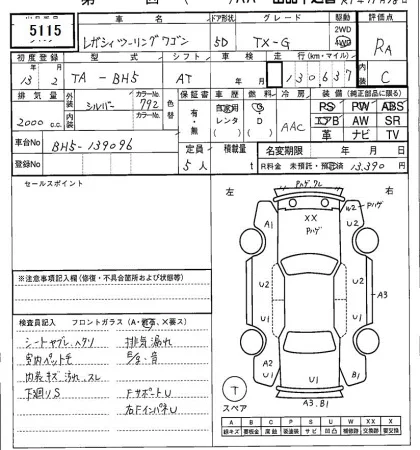 5115
車名
ドア形状
グレード
駆動
評価点
レガシィツーリングワゴン
5D
TX-G
2WD
4WD
RA
初度登録
型式
シフト
車検
走行(km・マイル)
内装
年 月
13 2
TA-BH5
AT
年 月
130,637
C
排気量
外装
カラーNo.
色替
保証書
車歴
燃料
冷房
装備(純正部品に限る)
2000 c.c.
シルバー
792
内装
カラーNo.
有・無
自家用
レンタ
G
D
AAC
PS PW ABS
エアB AW SR
革 ナビ TV
車台No
BH5-139096
定員
積載量
名変期限 年 月 日
登録No
5人
t
R料金 未預託・預託済 13,390円
セールスポイント
左
右
A1
XX
Pハゲ
W2 Pハゲ
U2
U2
U2
U1
A3
A2
U1
U1
B1
A3.B1
T
スペア
※注意事項記入欄(修復・不具合箇所および状態等)
検査員記入 フロントガラス(A・飛石、×要ス)
シートヤブレ、ヘタリ 排気漏れ
室内ペット毛
内装キズ、汚れ、スレ
下廻りS
FサポートU
右FインパネU
A B C P S U W XX X